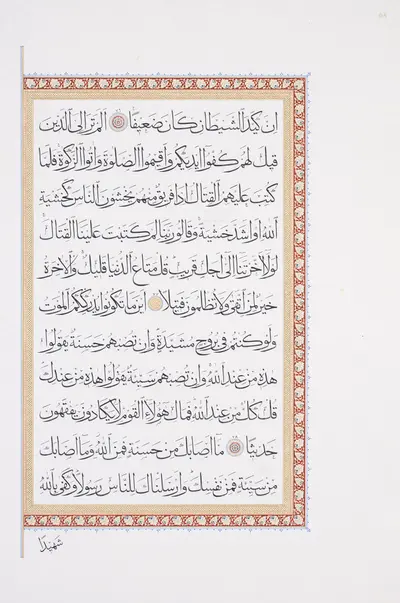 ان كيد الشيطان كان ضعيفا الم تر الى الذين
قيل لهم كفوا ايديكم واقيموا الصلوة واتوا الزكوة فلما
كتب عليهم القتال اذا فريق منهم يخشون الناس كخشية
الله او اشد خشية وقالوا ربنا لم كتبت علينا القتال
لولا اخرتنا الى اجل قريب قل متاع الدنيا قليل والاخرة
خير لمن اتقى ولا تظلمون فتيلا اينما تكونوا يدرككم الموت
ولو كنتم في بروج مشيدة وان تصبهم حسنة يقولوا
هذه من عند الله وان تصبهم سيئة يقولوا هذه من عندك
قل كل من عند الله فمال هؤلاء القوم لا يكادون يفقهون
حديثا ما اصابك من حسنة فمن الله وما اصابك
من سيئة فمن نفسك وارسلناك للناس رسولا وكفى بالله
شهيدا